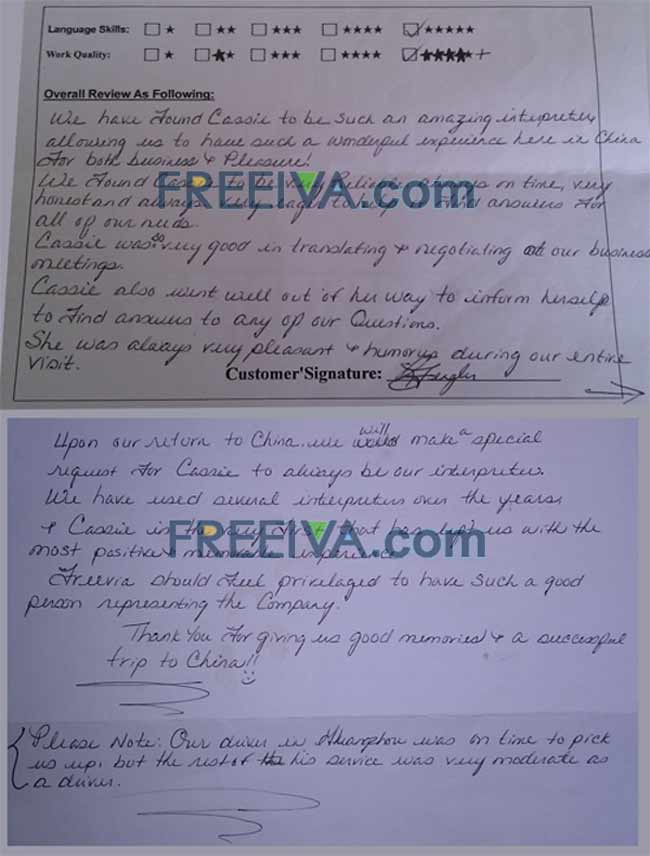 Language Skills: ☐ ★ ☐ ★★ ☐ ★★★ ☐ ★★★★ ☑ ★★★★★
Work Quality: ☐ ★ ☐ ★★ ☐ ★★★ ☐ ★★★★ ☑ ★★★★★+
Overall Review As Following:
We have Found Cassie to be such an amazing interpreter,
allowing us to have such a wonderful experience here in China
For both business & Pleasure!
We Found Cassie to be very Reliable, always on time, very
FREEIVA.com
honest and always very eager to Find answers For
all of our needs.
Cassie was so very good in translating & negotiating at our business
meetings.
Cassie also went well out of her way to inform herself
to Find answers to any of our Questions.
She was always very pleasant & humorus during our entire
visit.
Customer'Signature:
Upon our return to China, we will make a special
request For Cassie to always be our interpreter.
We have used several interpreters over the years
& Cassie is the very first that has left us with the
FREEIVA.com
most positive & memorable experience.
Freevia should Feel privelaged to have such a good
person representing the Company.
Thank You For giving us good memories & a successful
trip to China!!
Please Note: Our driver in was on time to pick
us up, but the rest of his service was very moderate as
a driver.